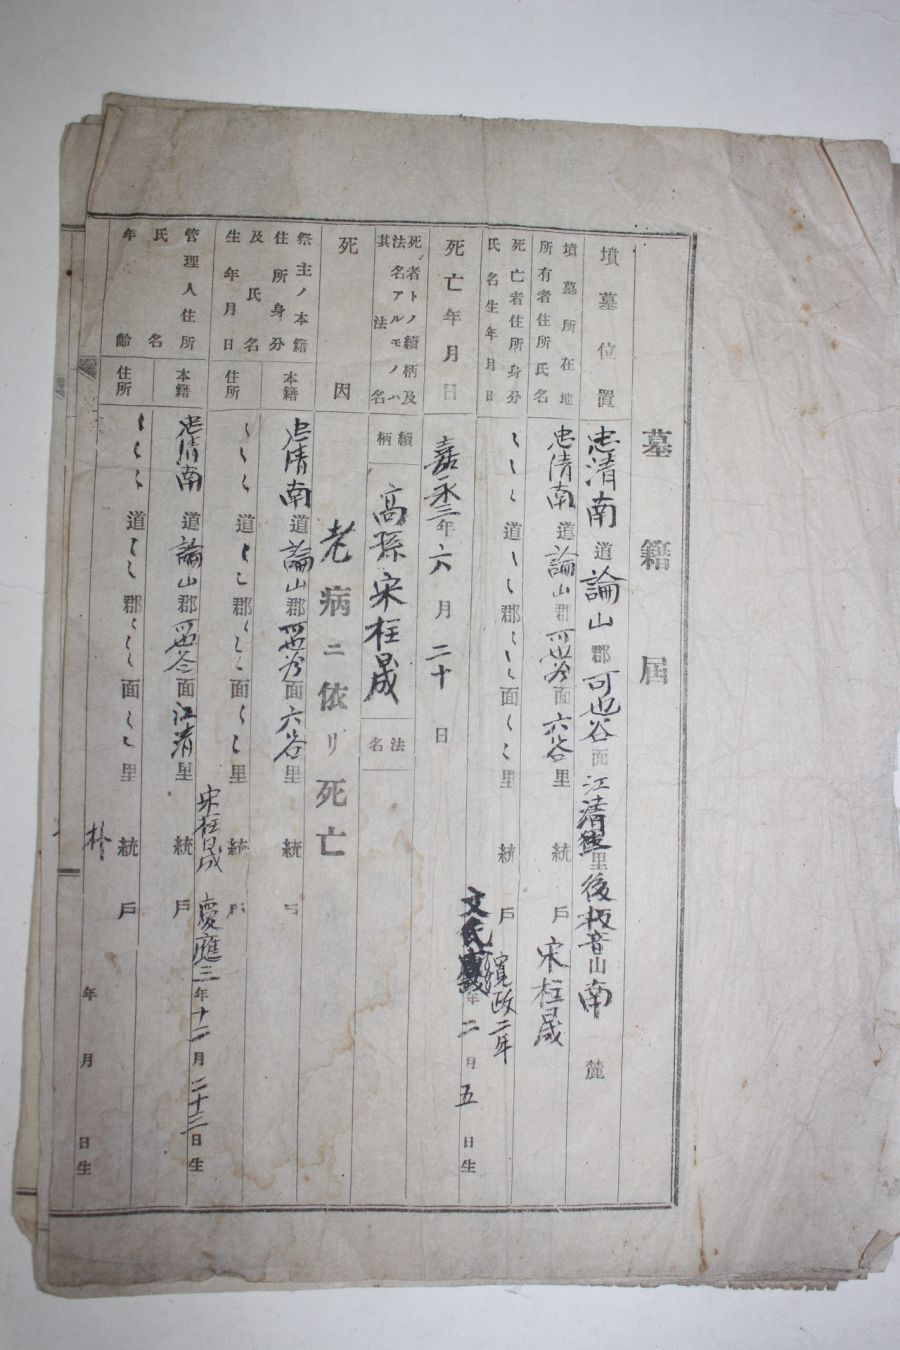 墓籍届
墳墓位置
忠清南道論山郡可也谷面江清里後板音山南麓
墳墓所在地
所有者住所氏名
忠清南道論山郡面六谷里統戶宋柱晟
死亡者住所身分
氏名生年月日
〻〻〻道〻〻郡〻〻〻面〻〻里統戶寛政二年
文氏年二月五日生
死亡年月日
嘉永三年六月二十日
死者トノ續柄及
法名アルモノハ
其法名
續柄
高孫宋柱晟
法名
死因
老病ニ依リ死亡
祭主ノ本籍
住所身分
及氏名
生年月日
本籍
忠清南道論山郡面六谷里統戶
住所
〻〻〻道〻〻郡〻〻〻面〻〻里統戶
宋柱晟慶應三年十二月二十三日生
管理人住所
氏名
年齡
本籍
忠清南道論山郡面江清里統戶
住所
〻〻〻道〻〻郡〻〻〻面〻〻里統戶
年月日生